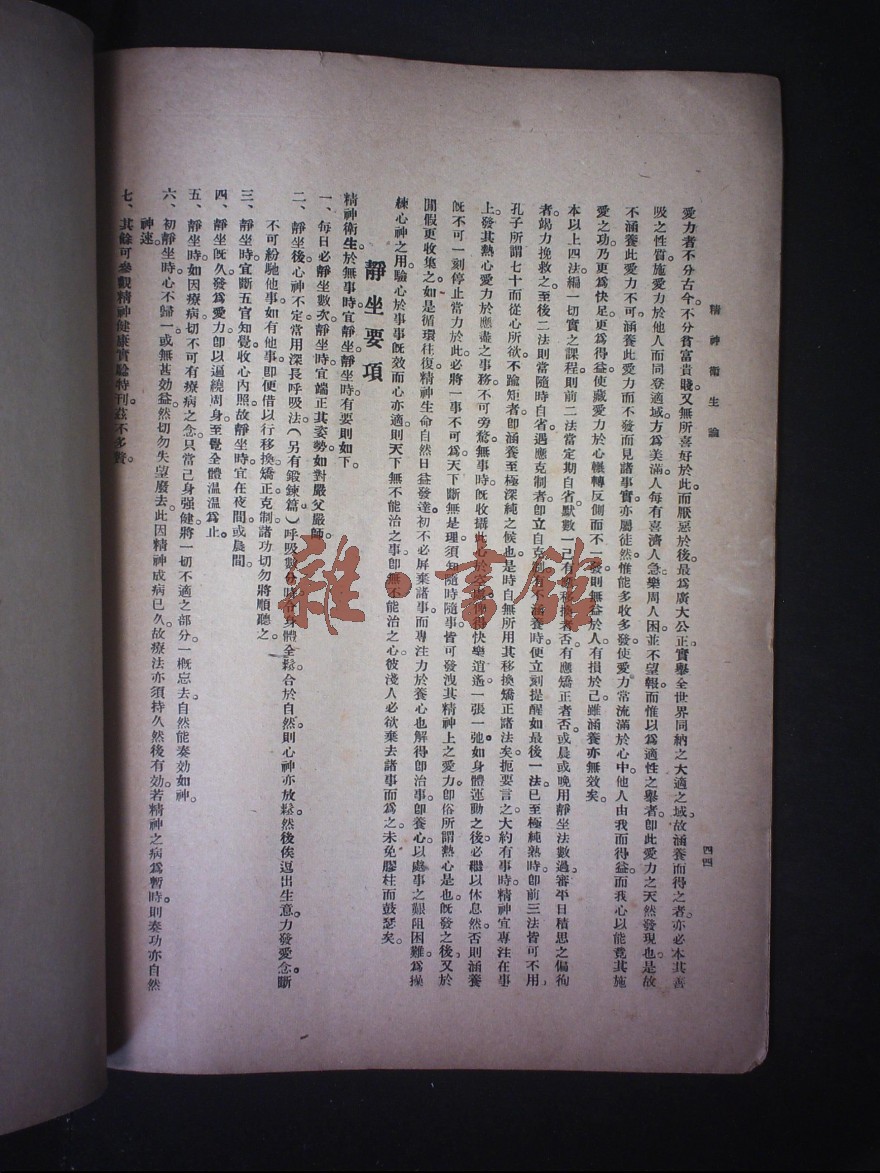 精神衞生論
四四
愛力者不分古今。不分貧富貴賤。又無所喜好於此。而厭惡於後。最爲廣大公正。實舉全世界同納之大適之域。故涵養而得之者。亦必本其善
吸之性質。施愛力於他人。而同登適域。方爲美滿。人每有喜濟人急。樂周人困。並不望報。而惟以爲適性之舉者。卽此愛力之天然發現也。是故
不涵養此愛力不可。涵養此愛力而不發而見諸事實。亦屬徒然。惟能多收多發。使愛力常流滿於心中。他人由我而得益。而我心以能竟其施
愛之功。乃更爲快足。更爲得益。使藏愛力於心。輾轉反側。而不一發。則無益於人。有損於己。雖涵養亦無效矣。
本以上四法。編一切實之課程。則前二法當定期自省。默數一己有應移換者否。有應矯正者否。或晨或晚。用靜坐法。數過審平日積思之偏徇
者。竭力挽救之。至後二法。則當隨時自省。遇應克制者。卽立自克制。有不涵養時。便立刻提醒。如最後一法。已至極純熟時。卽前三法皆可不用。
孔子所謂七十而從心所欲。不踰矩者。卽涵養至極深純之候也。是時自無所用其移換矯正諸法矣。扼要言之。大約有事時。精神宜專注在事
上。發其熱心愛力於應盡之事務。不可旁騖。無事時。旣收攝此心於 使得快樂逍遙。一張一弛。如身體運動之後。必繼以休息。然否則涵養
旣不可一刻停止。當力於此。必將一事不可爲。天下斷無是理。須知隨時隨事。皆可發洩其精神上之愛力。卽俗所謂熱心是也。旣發之後。又於
閒假更收集之。如是循環往復。精神生命。自然日益發達。初不必屏棄諸事。而專注力於養心也。解得卽治事卽養心。以處事之艱阻困難。爲操
練心神之用。驗心於事。事旣效而心亦適。則天下無不能治之事。卽無不能治之心。彼淺人必欲棄去諸事而爲之。未免膠柱而鼓瑟矣。
靜坐要項
精神衞生。於無事時宜靜坐。靜坐時有要則如下。
一、每日必靜坐數次。靜坐時宜端正其姿勢。如對嚴父嚴師。
二、靜坐後。心神不定。常用深長呼吸法（另有鍛鍊篇）呼吸數分時。令身體全鬆。合於自然。則心神亦放鬆。然後俟逗出生意。力發愛念。斷
不可紛馳他事。如有他事。卽便借以行移換矯正克制諸功。切勿將順聽之。
三、靜坐時。宜斷五官知覺。收心內照。故靜坐時宜在夜間或晨間。
四、靜坐旣久。發爲愛力。卽以遍繞周身。至覺全體溫溫爲止。
五、靜坐時。如因療病。切不可有療病之念。只當己身强健。將一切不適之部分。一概忘去。自然能奏効如神。
六、初靜坐時。心不歸一。或無甚効益。然切勿失望廢去。此因精神成病已久。故療法亦須持久。然後有効。若精神之病爲暫時。則奏功亦自然
神速。
七、其餘可參觀精神健康實驗特刊。茲不多贅。
雜·書館